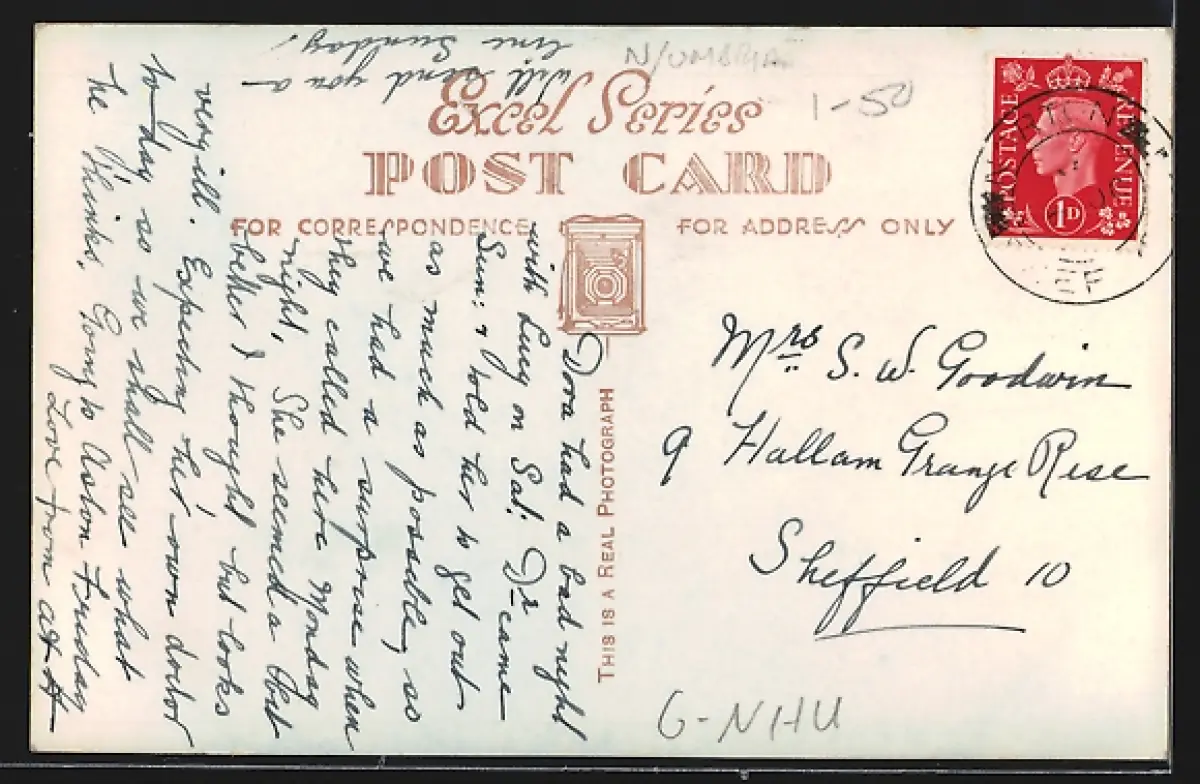 N/UMBRIA
1-50
Excel Series
POST CARD
FOR CORRESPONDENCE
FOR ADDRESS ONLY
POSTAGE REVENUE
1D
THIS IS A REAL PHOTOGRAPH
Dora had a bad night
with Lucy on Sat. Dr came
Sun: & told her to get out
as much as possible, so
we had a surprise when
they called here Monday
night, She seemed a bit
better I thought but looks
very ill. Expecting her own doctor
to-day so we shall see what
he thinks. Going to Aston Friday
Love from
will send you a
line Sunday.
Mrs S. W. Goodwin
9 Hallam Grange Rise
Sheffield 10
G-NHU